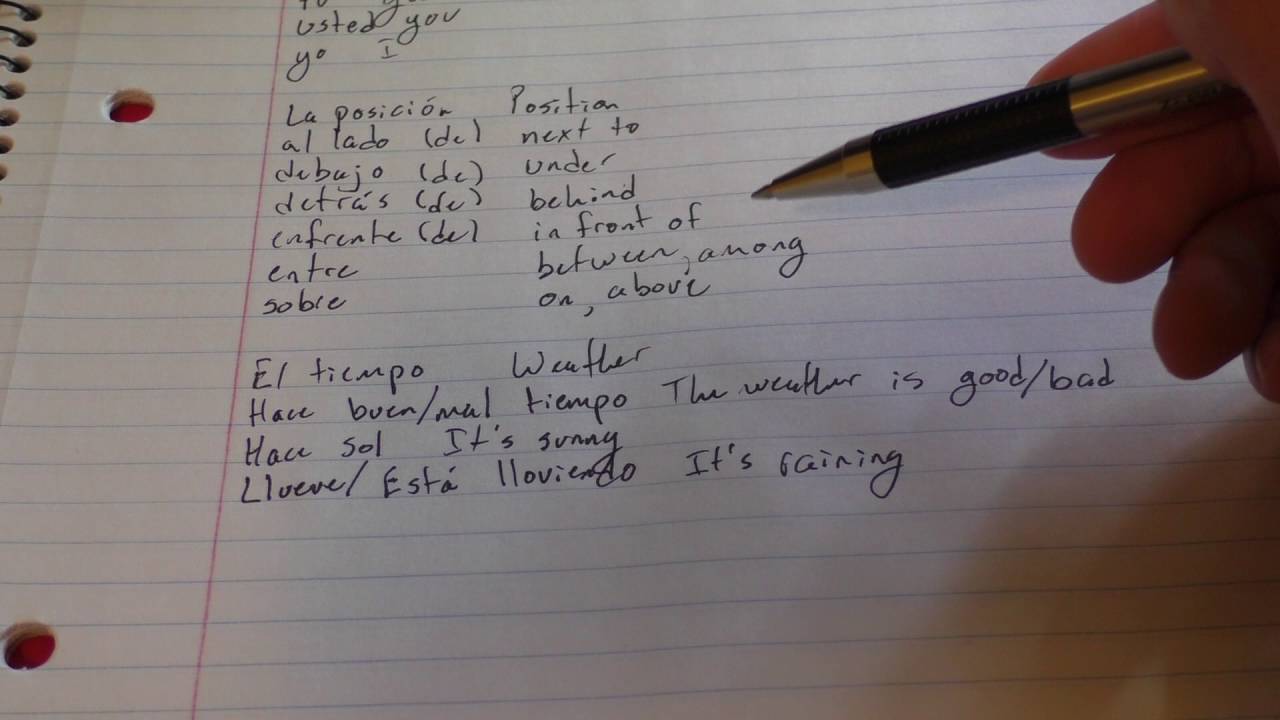 usted you
yo I
La posición Position
al lado (de) next to
debajo (de) under
detrás (de) behind
enfrente (de) in front of
entre between, among
sobre on, above
El tiempo Weather
Hace buen/mal tiempo The weather is good/bad
Hace sol It's sunny
Llueve/Está lloviendo It's raining